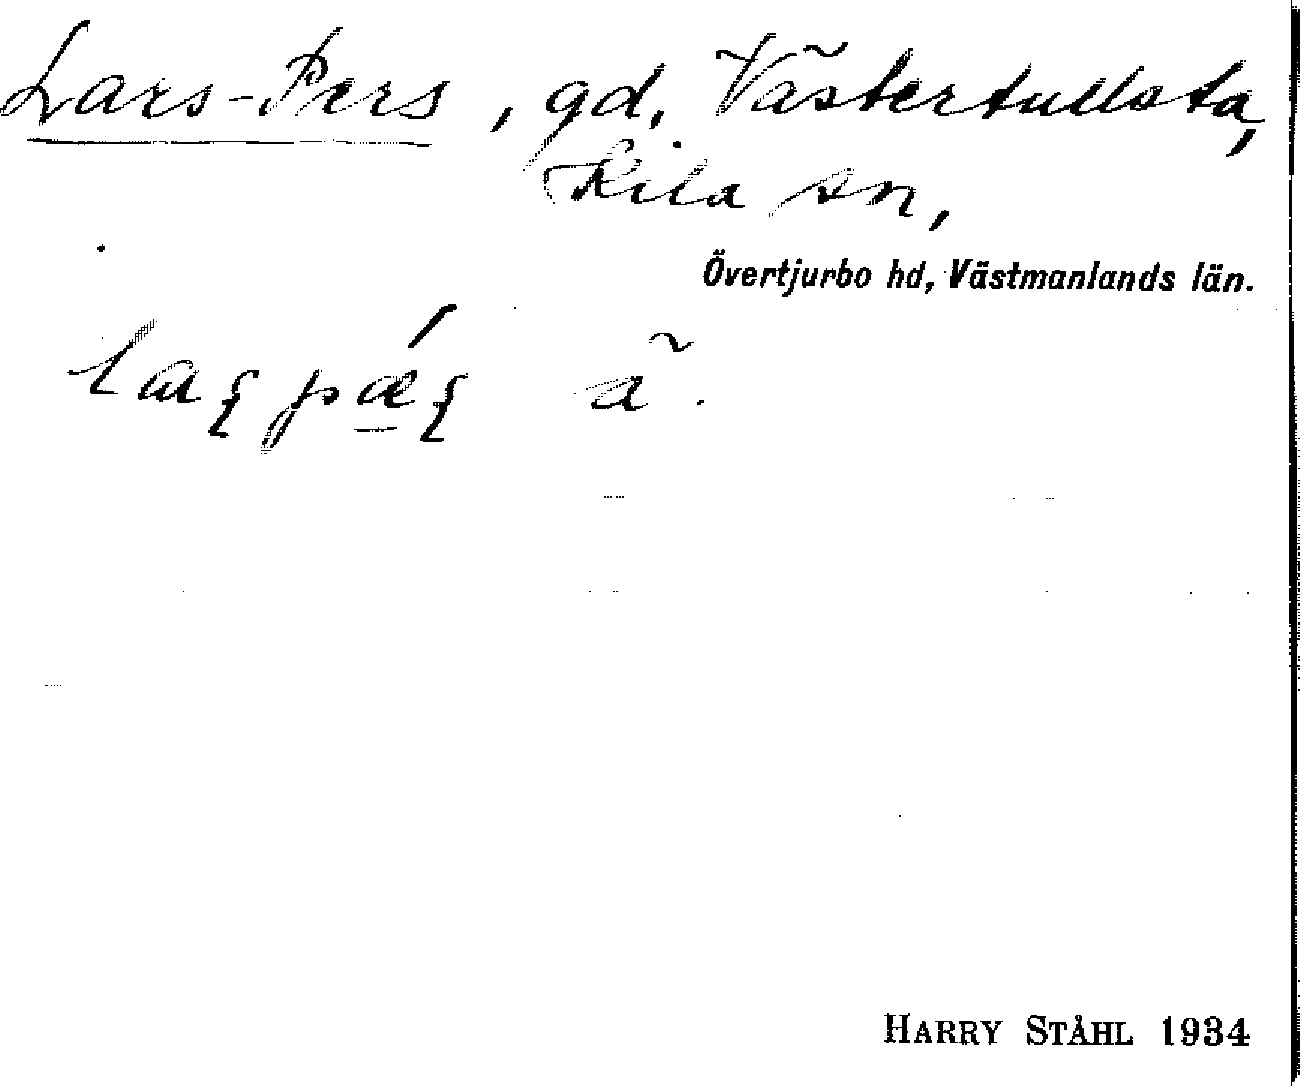 Lars-Pers, gd, Västertullsta,
Kila sn,
Övertjurbo hd, Västmanlands län.
ã.
HARRY STÅHL 1934